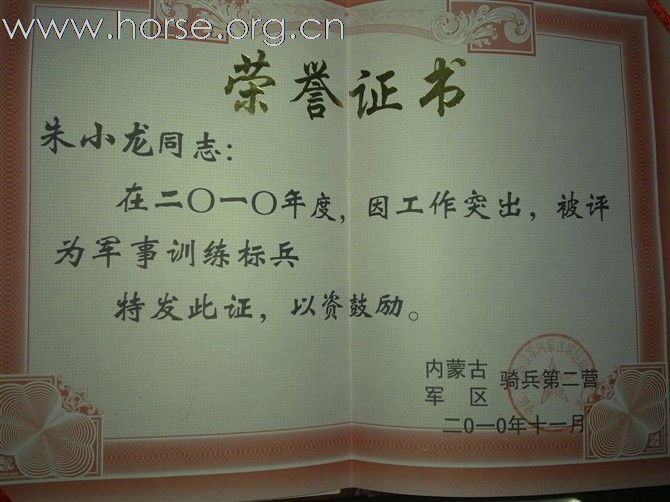 www.horse.org.cn
荣誉证书
朱小龙同志：
在二〇一〇年度，因工作突出，被评
为军事训练标兵
特发此证，以资鼓励。
内蒙古
军 区 骑兵第二营
二〇一〇年十一月